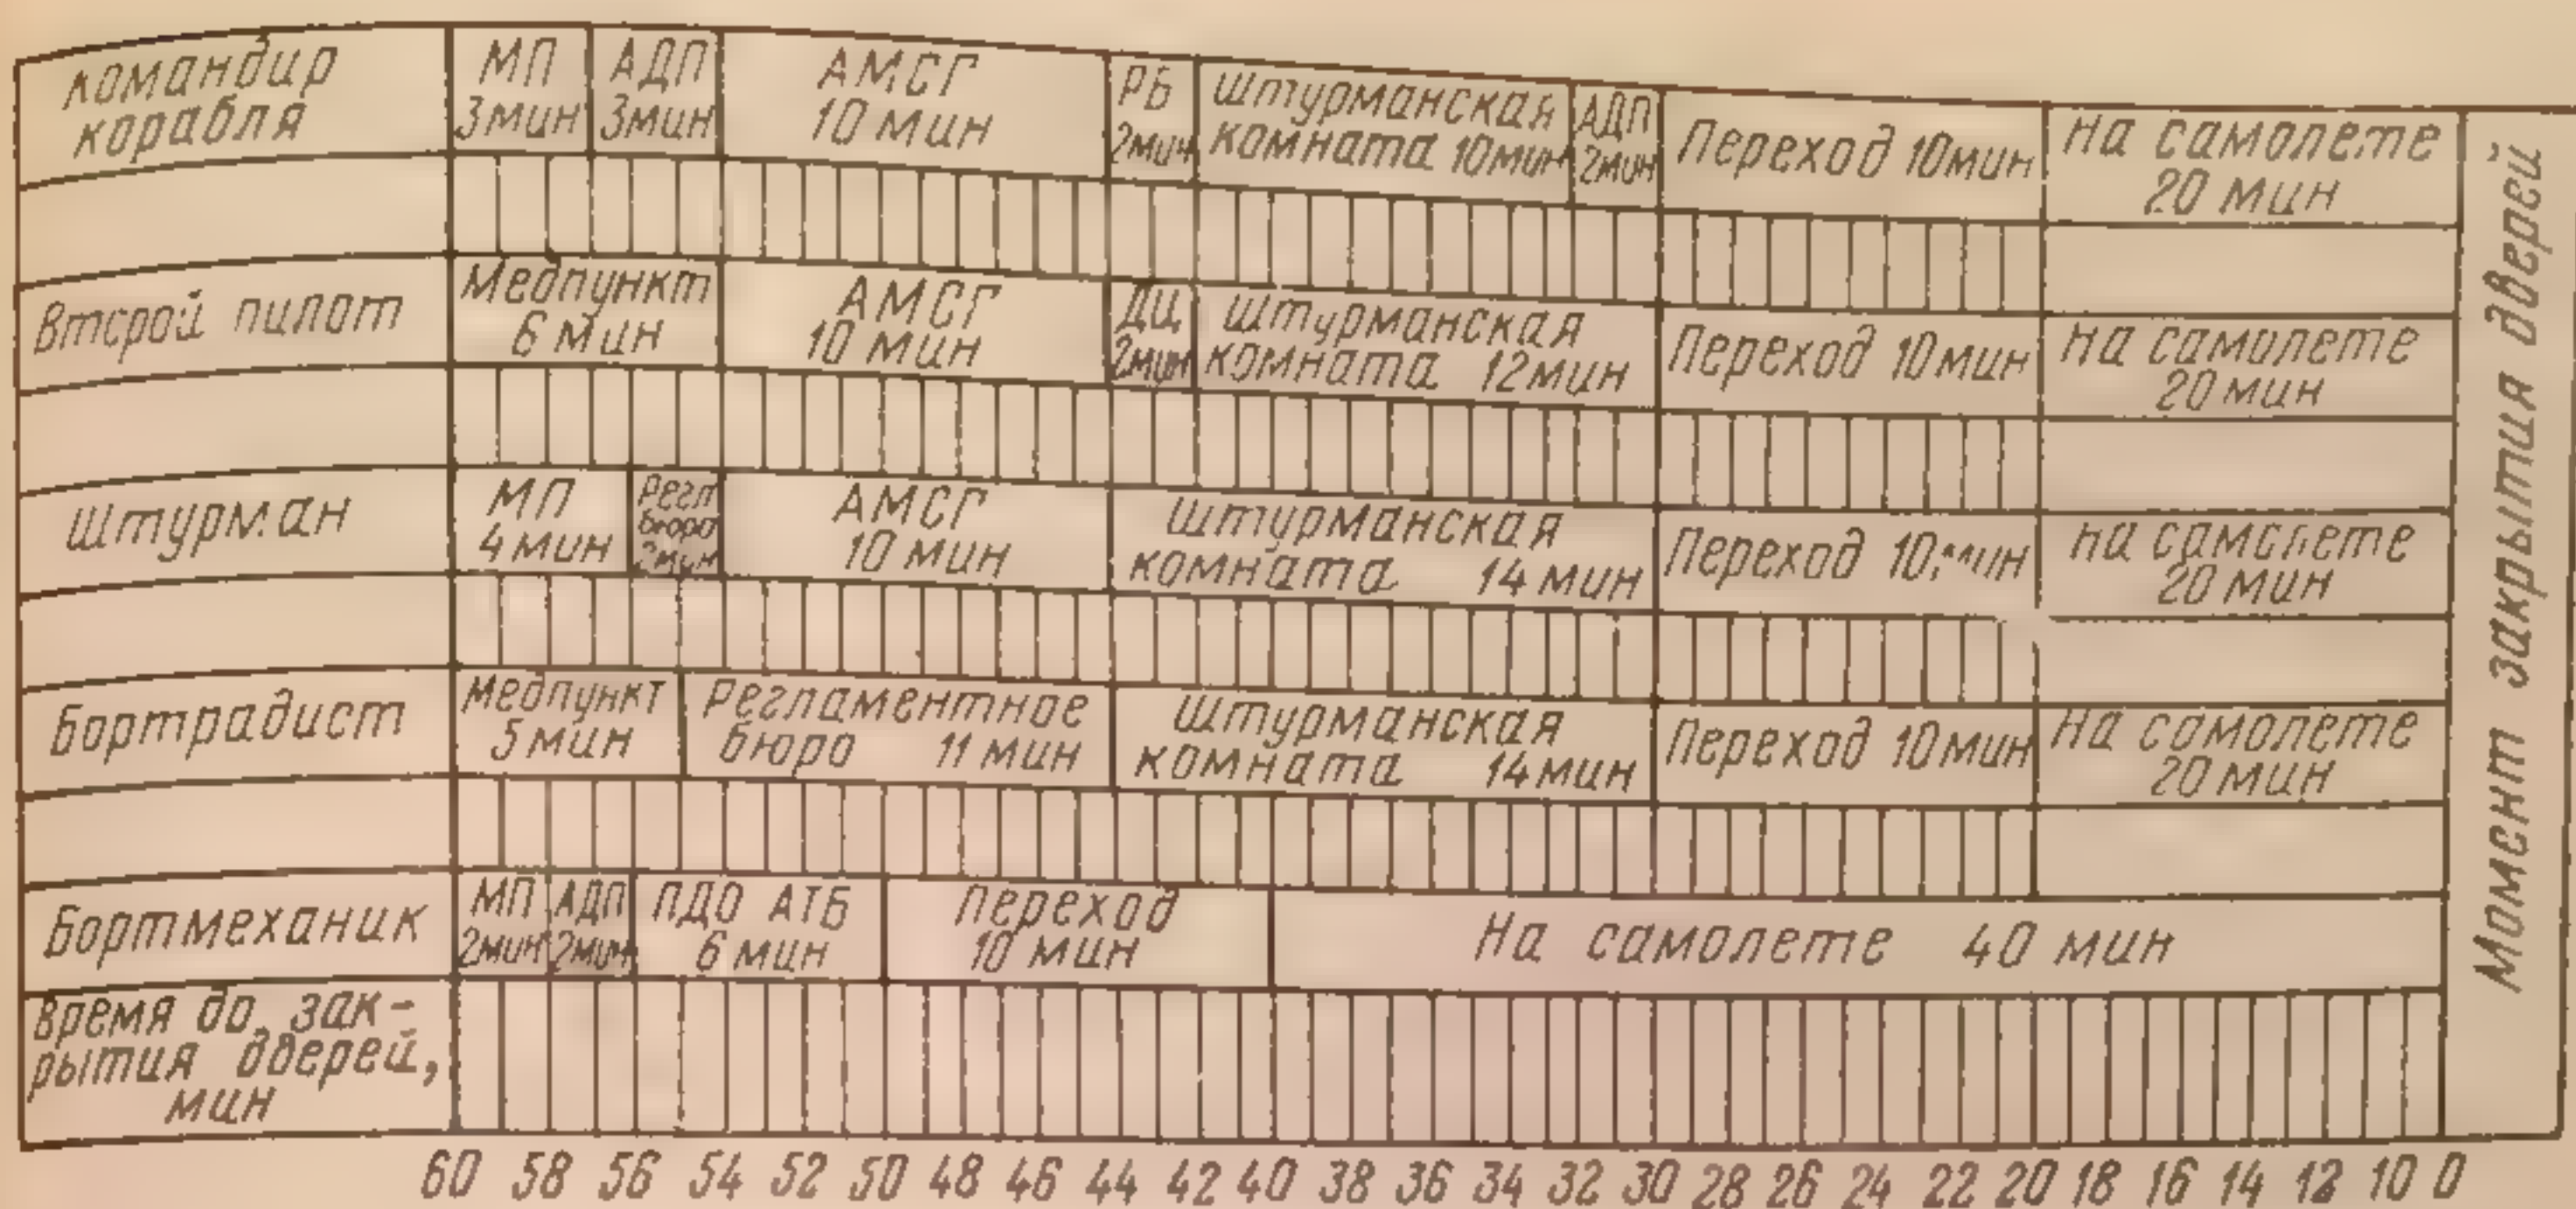 Командир
корабля
МП
3мин
АДП
3мин
АМСГ
10 мин
РБ
2мин
Штурманская
комната 10мин
АДП
2мин
Переход 10мин
На самолете
20 мин
Второй пилот
Медпункт
6 мин
АМСГ
10 мин
ДЦ
2мин
Штурманская
комната 12мин
Переход 10мин
На самолете
20 мин
Штурман
МП
4 мин
Регл
бюро
2мин
АМСГ
10 мин
Штурманская
комната 14 мин
Переход 10мин
На самолете
20 мин
Бортрадист
Медпункт
5 мин
Регламентное
бюро 11 мин
Штурманская
комната 14мин
Переход 10мин
На самолете
20 мин
Бортмеханик
МП
2мин
АДП
2мин
ПДО АТБ
6 мин
Переход
10 мин
На самолете 40 мин
Время до зак-
рытия дверей,
мин
60 58 56 54 52 50 48 46 44 42 40 38 36 34 32 30 28 26 24 22 20 18 16 14 12 10 0
Момент закрытия дверей